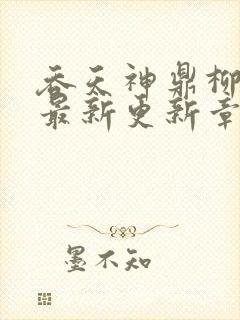 吞天神鼎柳
最新更新章
墨不知